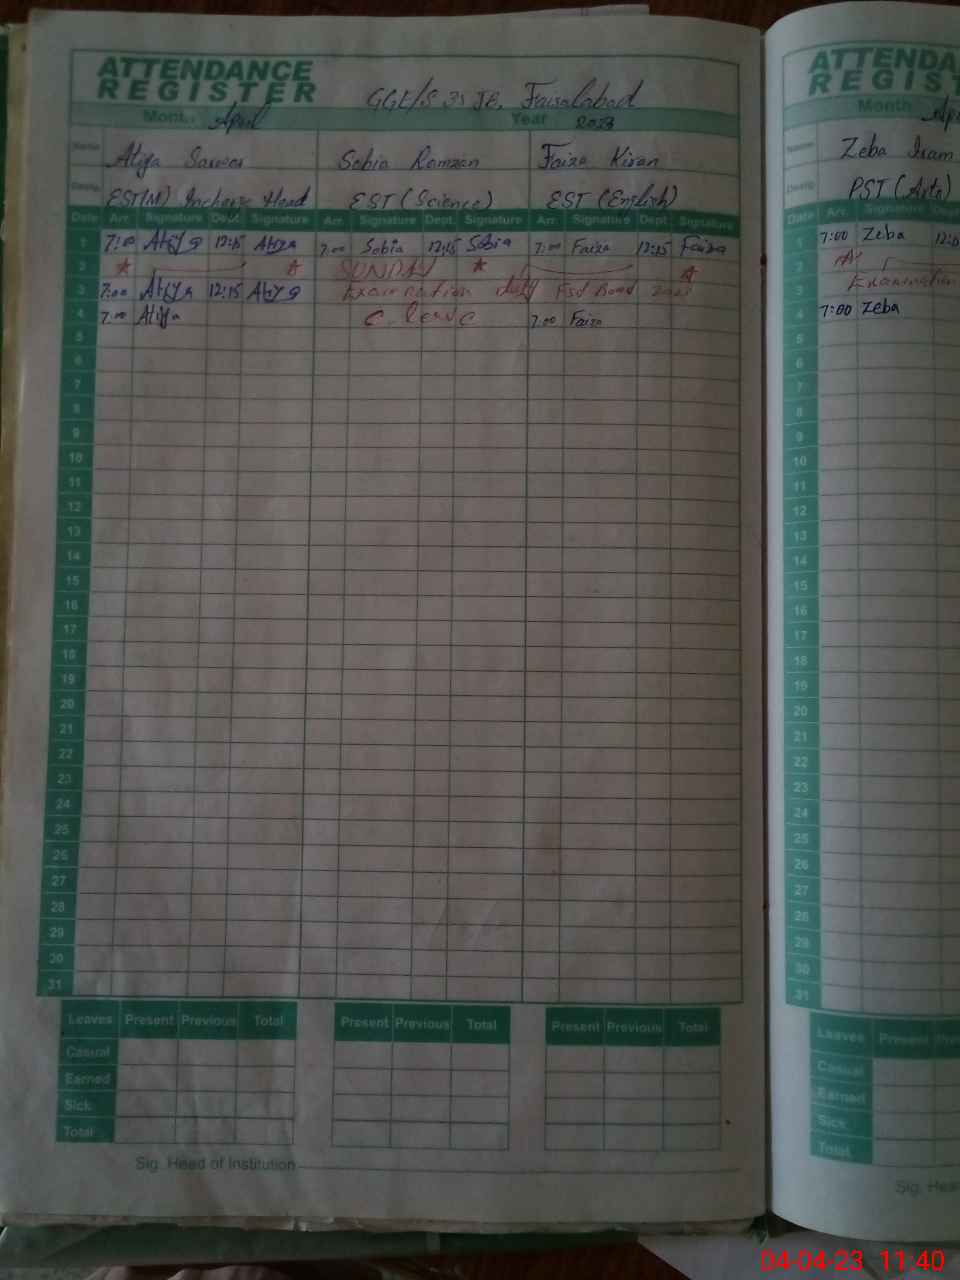 ATTENDANCE
REGISTER
GGE/S 31 JB. Faisalabad
Month April Year 2023
Name Atiya Sarwar Sobia Ramzan Faiza Kiran
Desig. EST(M) Incharge Head EST (Science) EST (English)
Date Arr. Signature Dept. Signature Arr. Signature Dept. Signature Arr. Signature Dept. Signature
1 7:00 Atiya 12:15 Atiya 7:00 Sobia 12:15 Sobia 7:00 Faiza 12:15 Faiza
2 SUNDAY
3 7:00 Atiya 12:15 Atiya Examination duty Fsd Board 2023
4 7:00 Atiya C. leave 7:00 Faiza
5
6
7
8
9
10
11
12
13
14
15
16
17
18
19
20
21
22
23
24
25
26
27
28
29
30
31
Leaves Present Previous Total Present Previous Total Present Previous Total
Casual
Earned
Sick
Total
Sig. Head of Institution
ATTENDA
REGIST
Month Ap
Name Zeba Iram
Desig PST (Arts)
Date Arr. Signature Dep
1 7:00 Zeba 12:15
2
3 Examination
4 7:00 Zeba
5
6
7
8
9
10
11
12
13
14
15
16
17
18
19
20
21
22
23
24
25
26
27
28
29
30
31
Leaves Present Prev
Casual
Earned
Sick
Total
Sig. Hea
04-04-23 11:40